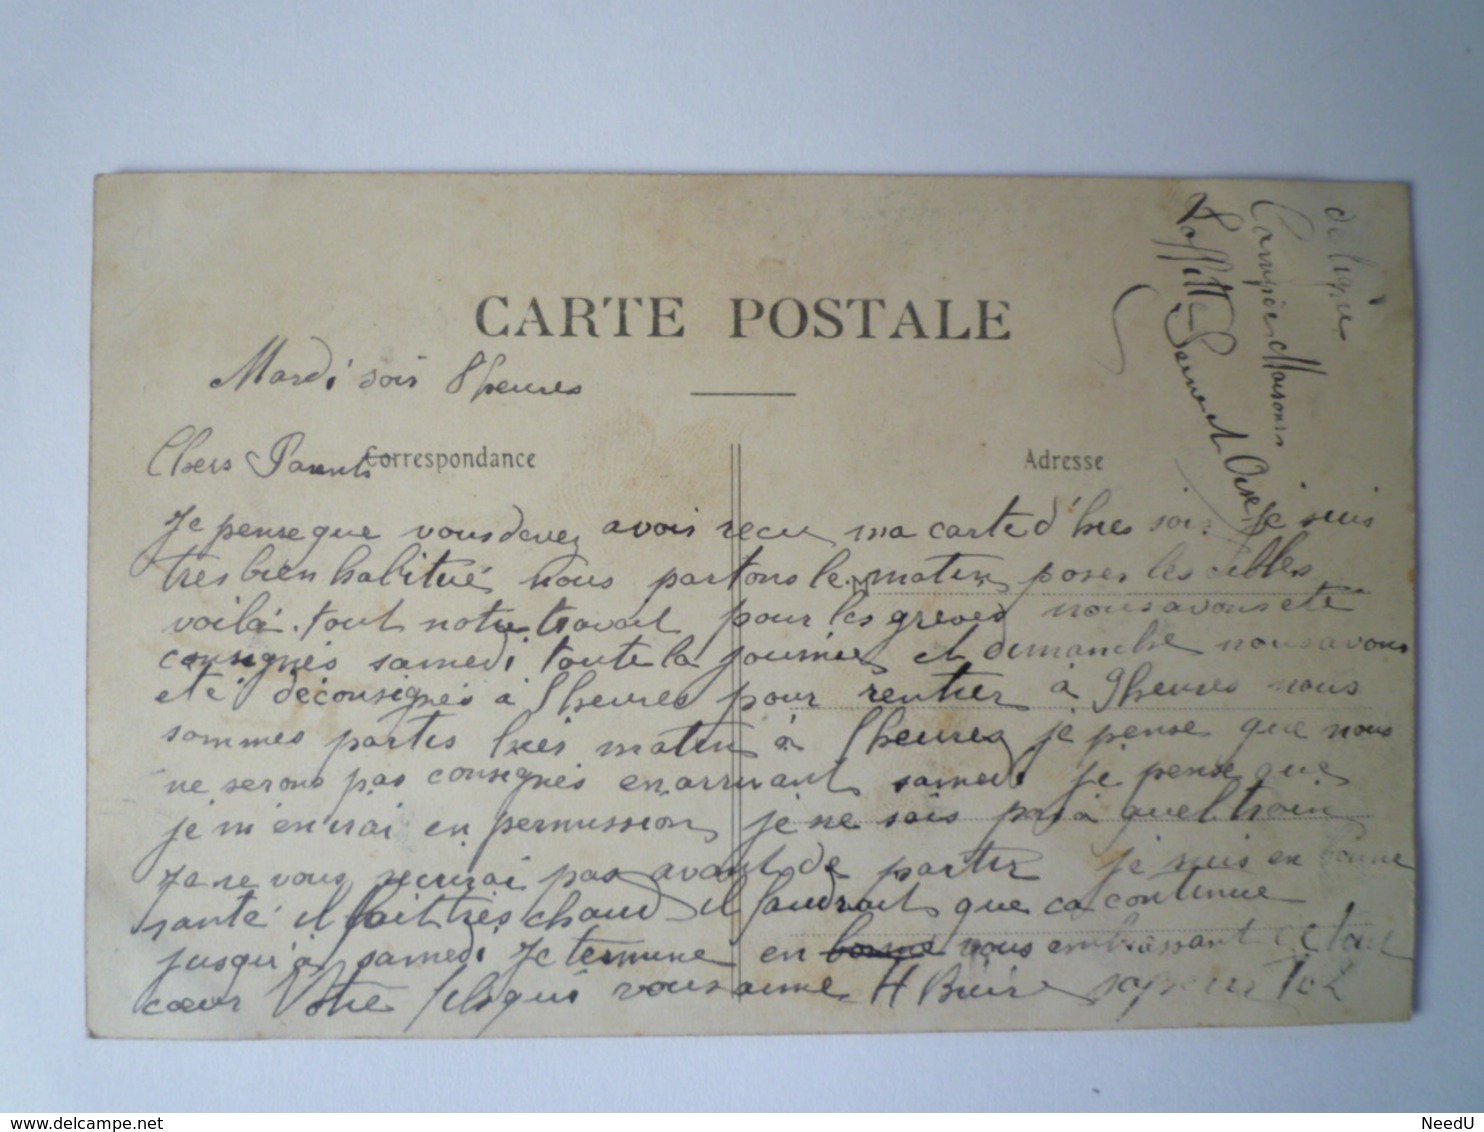 CARTE POSTALE
Mardi soir 8 heures
Correspondance
Adresse
Chers Parents
Je pense que vous devez avoir recu ma carte d'hier soir je suis
tres bien habitué nous partons le matin poser les cibles
voilà tout notre travail pour les greves nous avons ete
consignés samedi toute la journée et dimanche nous avons
eté déconsignés à 5 heures pour rentrer à 9 heures nous
sommes partis hier matin à 5 heures je pense que nous
ne serons pas consignés en arrivant samedi je pense que
je m'en irai en permission je ne sais pas à quel train
Je ne vous recrirai pas avant de partir je suis en bonne
santé il fait tres chaud il faudrait que ca continue
jusqu'à samedi Je termine en vous embrassant de tout
cœur Votre fils qui vous aime H sapeur
Campé à Maisons
Laffitte Seine et Oise
NeedU